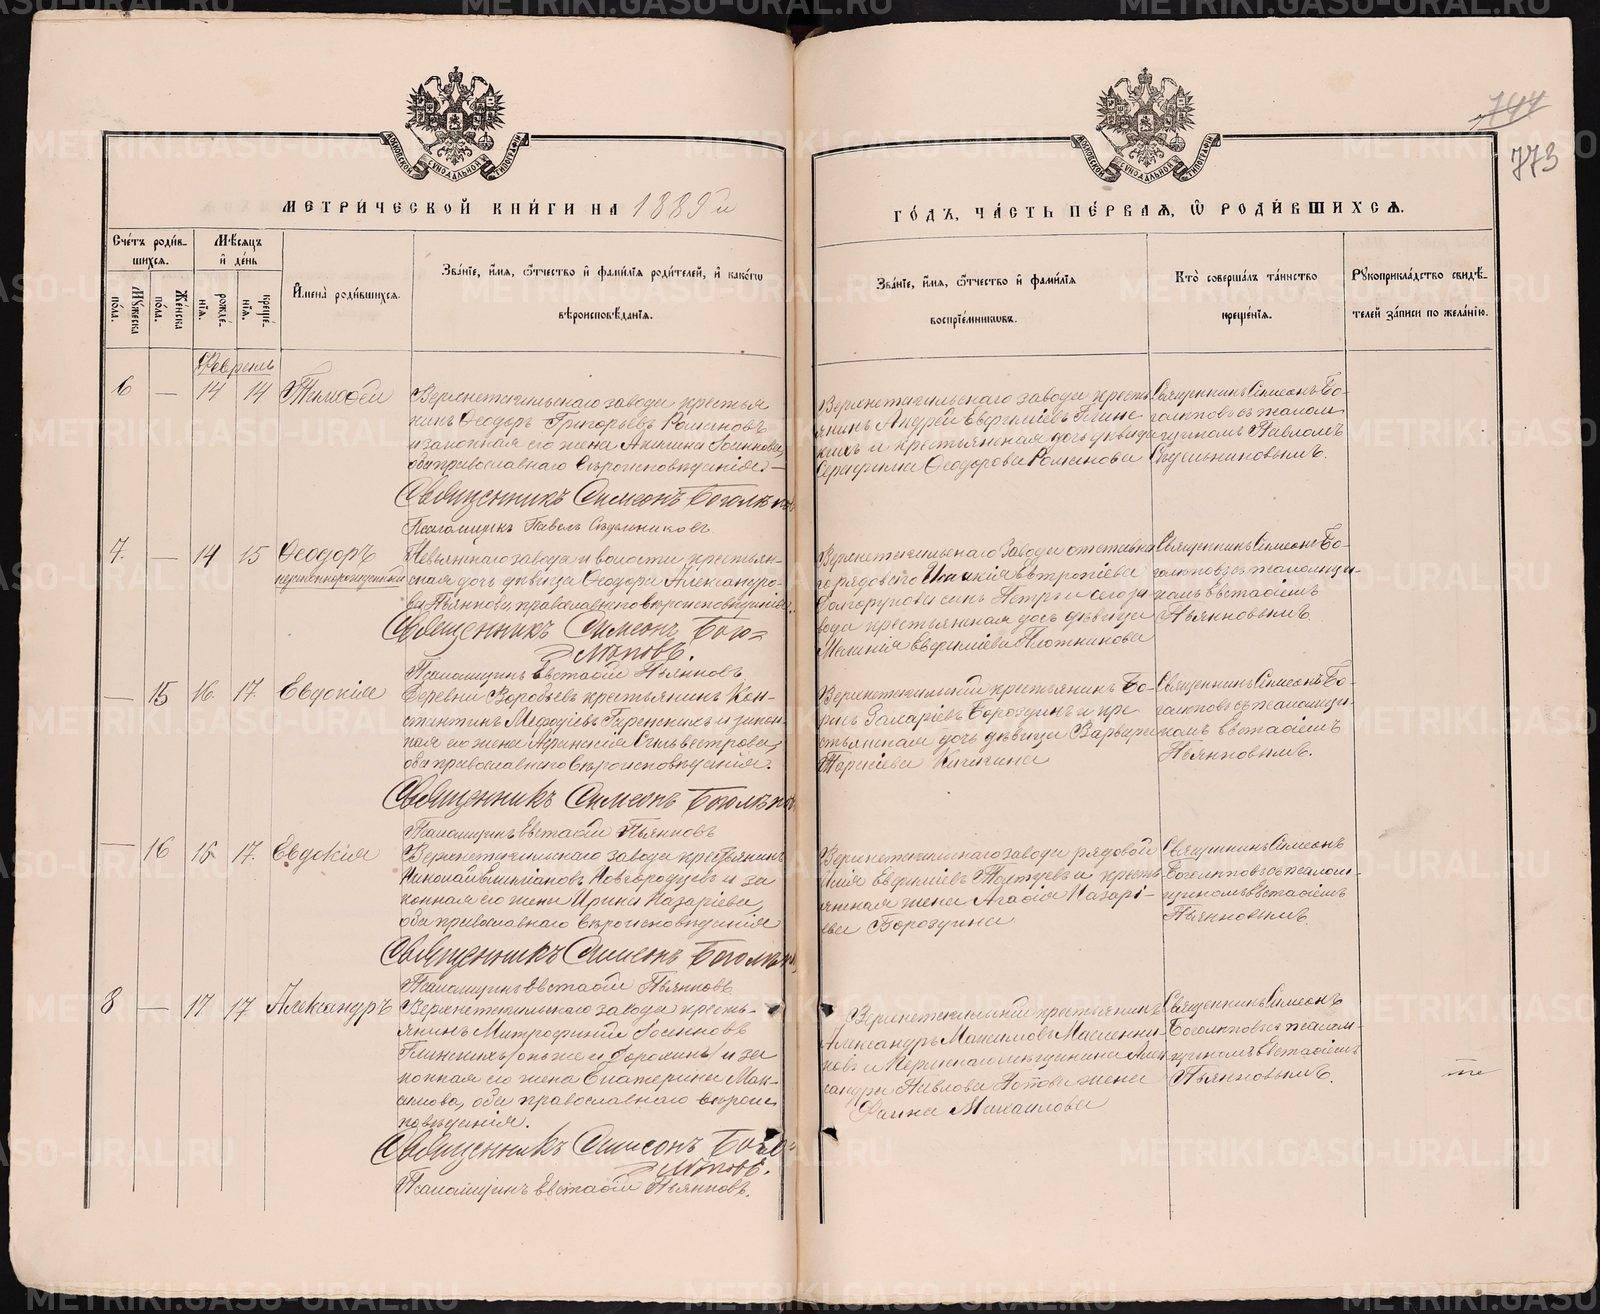 744
773
МОСКОВСКОЙ СѴНОДАЛЬНОЙ ТИПОГРАФІИ
МОСКОВСКОЙ СѴНОДАЛЬНОЙ ТИПОГРАФІИ
МЕТРИ́ЧЕСКОЙ КНИ́ГИ НА 1889й
ГО́ДЪ, ЧА́СТЬ ПЕ́РВАѦ, Ѡ҆ РОДИ́ВШИХСѦ.
Сче́тъ роди́в-
шихсѧ.
Мѣ́сѧцъ
и҆ де́нь
Мꙋ́жеска по́ла.
Же́нска по́ла.
рожде́-нїѧ.
креще́-нїѧ.
И҆мена̀ роди́вшихсѧ.
Зва́нїе, и҆́мѧ, ѻ҆́тчество и҆ фами́лїѧ роди́телей, и҆ како́гѡ
вѣроисповѣ́данїѧ.
Зва́нїе, и҆́мѧ, ѻ҆́тчество и҆ фами́лїѧ
воспрїе́мниковъ.
Кто̀ соверша́лъ та́инство
креще́нїѧ.
Рꙋкоприкла́дство свидѣ́-
телей за́писи по жела́нїю.
Февраль
6 — 14 14 Тимоѳей
Верхнетагильскаго завода крестья
нинъ Ѳеодоръ Григорьевъ Романовъ
и законная его жена Акилина Іоакимова,
оба православнаго вѣроисповѣданія.—
Священникъ Симеонъ Боголѣповъ
Псаломщикъ Павелъ Стрельниковъ
Верхнетагильскаго завода кресть
янинъ Андрей Евфиміевъ Глин
скихъ и крестьянская дочь дѣвица
Серафима Ѳеодорова Романова
Священникъ Симеонъ Бо-
голѣповъ съ псалом
щикомъ Павломъ
7. — 14 15 Ѳеодоръ
незаконнорожденный
Невьянскаго завода и волости крестьян-
ская дочь дѣвица Ѳеодора Александро-
ва Пьянкова, православнаго вѣроисповѣданія.
Священникъ Симеонъ Бого-
лѣповъ.
Псаломщикъ Евстафій Пьянковъ
Верхнетагильскаго завода отставна
го рядоваго Евтропіева
Долгорукова сынъ Петръ и сего за
вода крестьянская дочь дѣвица
Меланія Евфиміева Плотникова
Священникъ Симеонъ Бо-
голѣповъ съ псаломщи-
комъ Евстафіемъ
Пьянковымъ.
— 15 16. 17. Евдокія
Деревни Воробьевъ крестьянинъ Кон-
стантинъ Меѳодіевъ и закон-
ная его жена Сильвестрова,
оба православнаго вѣроисповѣданія.
Священникъ Симеонъ Боголѣповъ
Псаломщикъ Евстафій Пьянковъ
Верхнетагильскій крестьянинъ Бо-
рисъ Захаріевъ Бороздинъ и кре
стьянская дочь дѣвица Варвара
Кичигина
Священникъ Симеонъ Бо-
голѣповъ съ псаломщи-
комъ Евстафіемъ
Пьянковымъ.
— 16 16. 17. Евдокія
Верхнетагильскаго завода крестьянинъ
Николай Новгородцевъ и за
конная его жена Ирина Назаріева,
оба православнаго вѣроисповѣданія
Священникъ Симеонъ Боголѣповъ
Псаломщикъ Евстафій Пьянковъ
Верхнетагильскаго завода рядовой
Илія Евфиміевъ и кресть
янская жена Агафія Назарі-
ева Бороздина
Священникъ Симеонъ
Боголѣповъ съ псалом-
щикомъ Евстафіемъ
Пьянковымъ.
8 — 17 17 Александръ
Верхнетагильскаго завода кресть-
янинъ Митрофанъ Іоакимовъ
Глинскихъ (онъ же и Бороздинъ) и за
конная его жена Екатерина Мак-
симова, оба православнаго вѣроис
повѣданія.
Священникъ Симеонъ Бого-
лѣповъ.
Псаломщикъ Евстафій Пьянковъ.
Верхнетагильскій крестьянинъ
Александръ Максимовъ Масленни-
ковъ и мѣщанина Алек
сандра Павлова жена
Михаилова
Священникъ Симеонъ
Боголѣповъ съ псалом-
щикомъ Евстафіемъ
Пьянковымъ.
METRIKI.GASO-URAL.RU